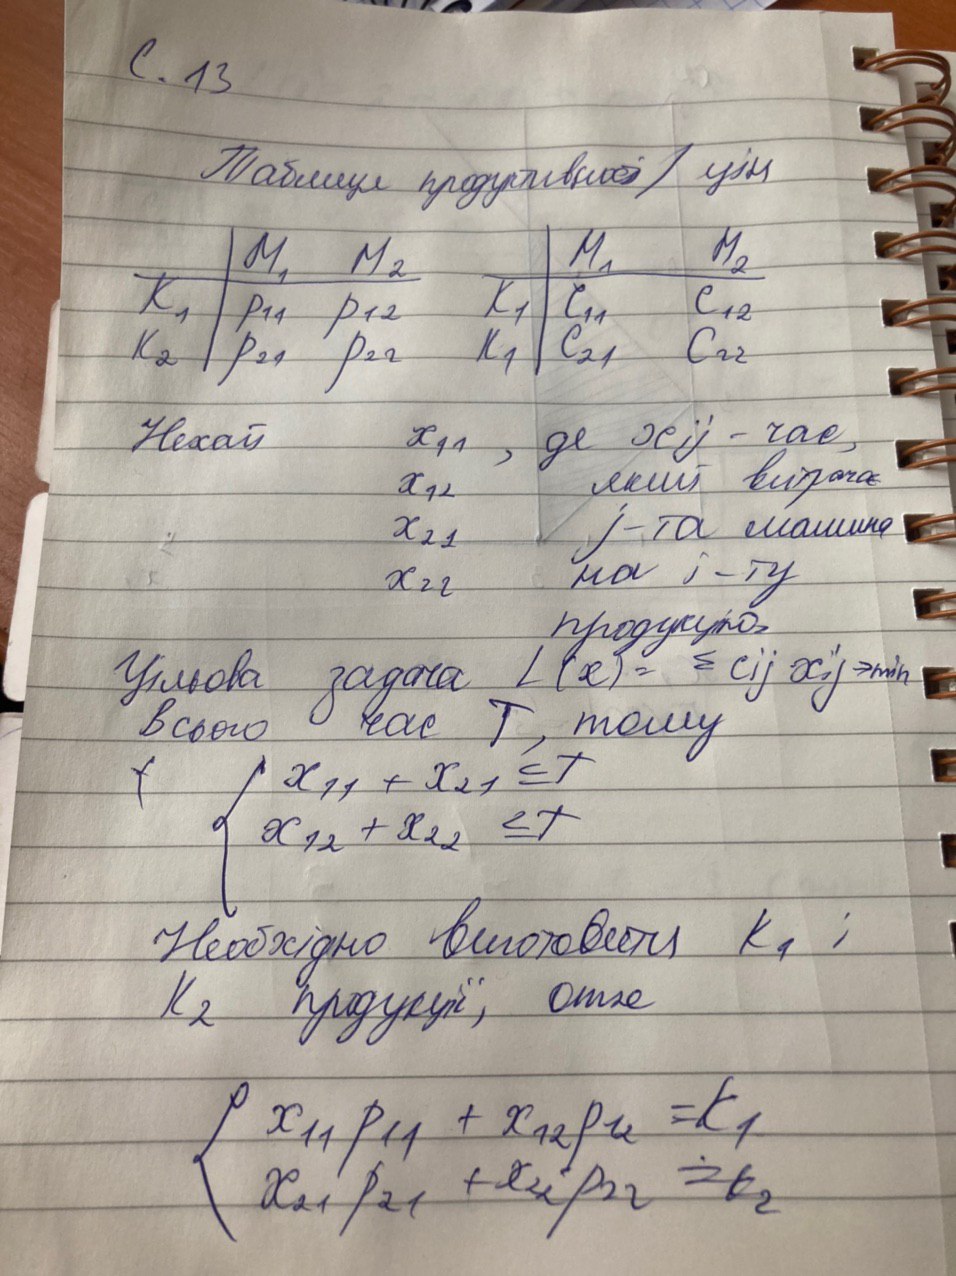 С. 13
Таблиця продуктивності / цін
M₁ M₂ M₁ M₂
K₁ p₁₁ p₁₂ K₁ C₁₁ C₁₂
K₂ p₂₁ p₂₂ K₁ C₂₁ C₂₂
Нехай x₁₁, де xij - час,
x₁₂ який витрача
x₂₁ j-та машина
x₂₂ на i-ту
продукцію
Цільова задача L(x) = Σ cij xij → min
Всього час T, тому
{ x₁₁ + x₂₁ ≤ T
x₁₂ + x₂₂ ≤ T
Необхідно виготовити K₁ і
K₂ продукції, отже
{ x₁₁p₁₁ + x₁₂p₁₂ = K₁
x₂₁p₂₁ + x₂₂p₂₂ = k₂